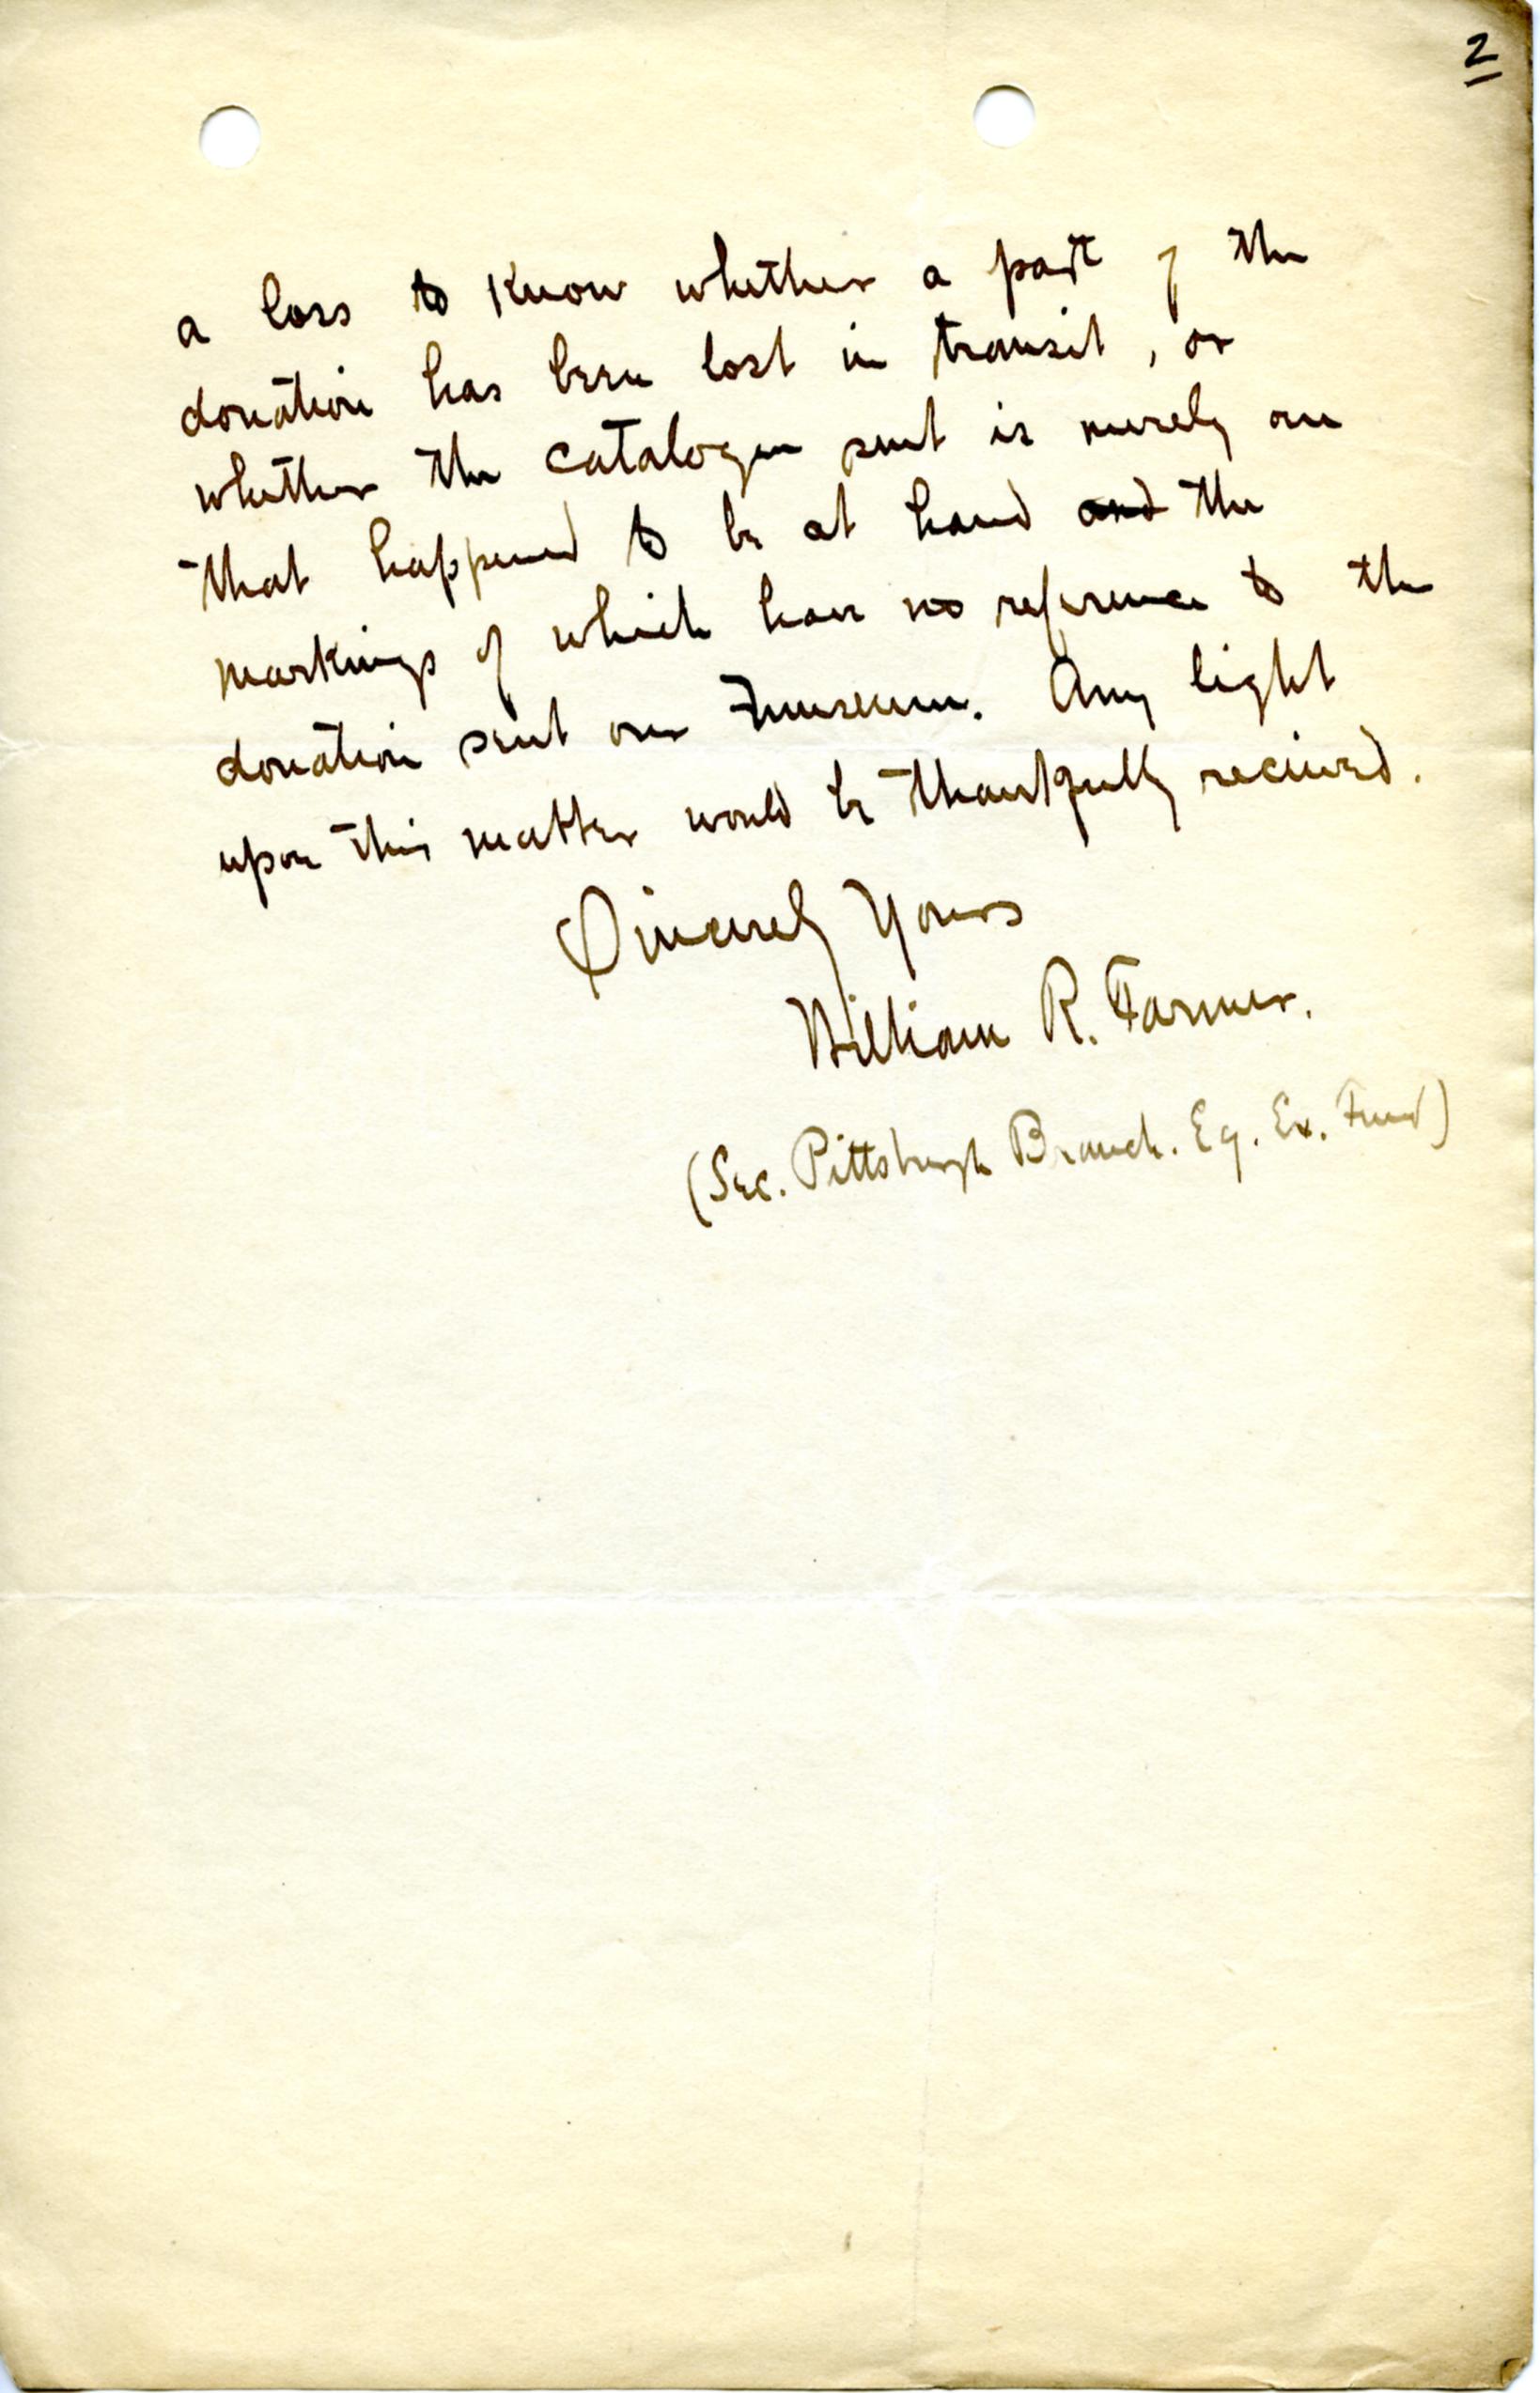 2
a loss to know whether a part of the
donation has been lost in transit, or
whether the catalogue sent is merely one
that happened to be at hand and the
markings of which have no reference to the
donation sent our museum. Any light
upon this matter would be thankfully received.
Sincerely Yours
William R. Farmer.
(Sec. Pittsburgh Branch. Eg. Ex. Fund)